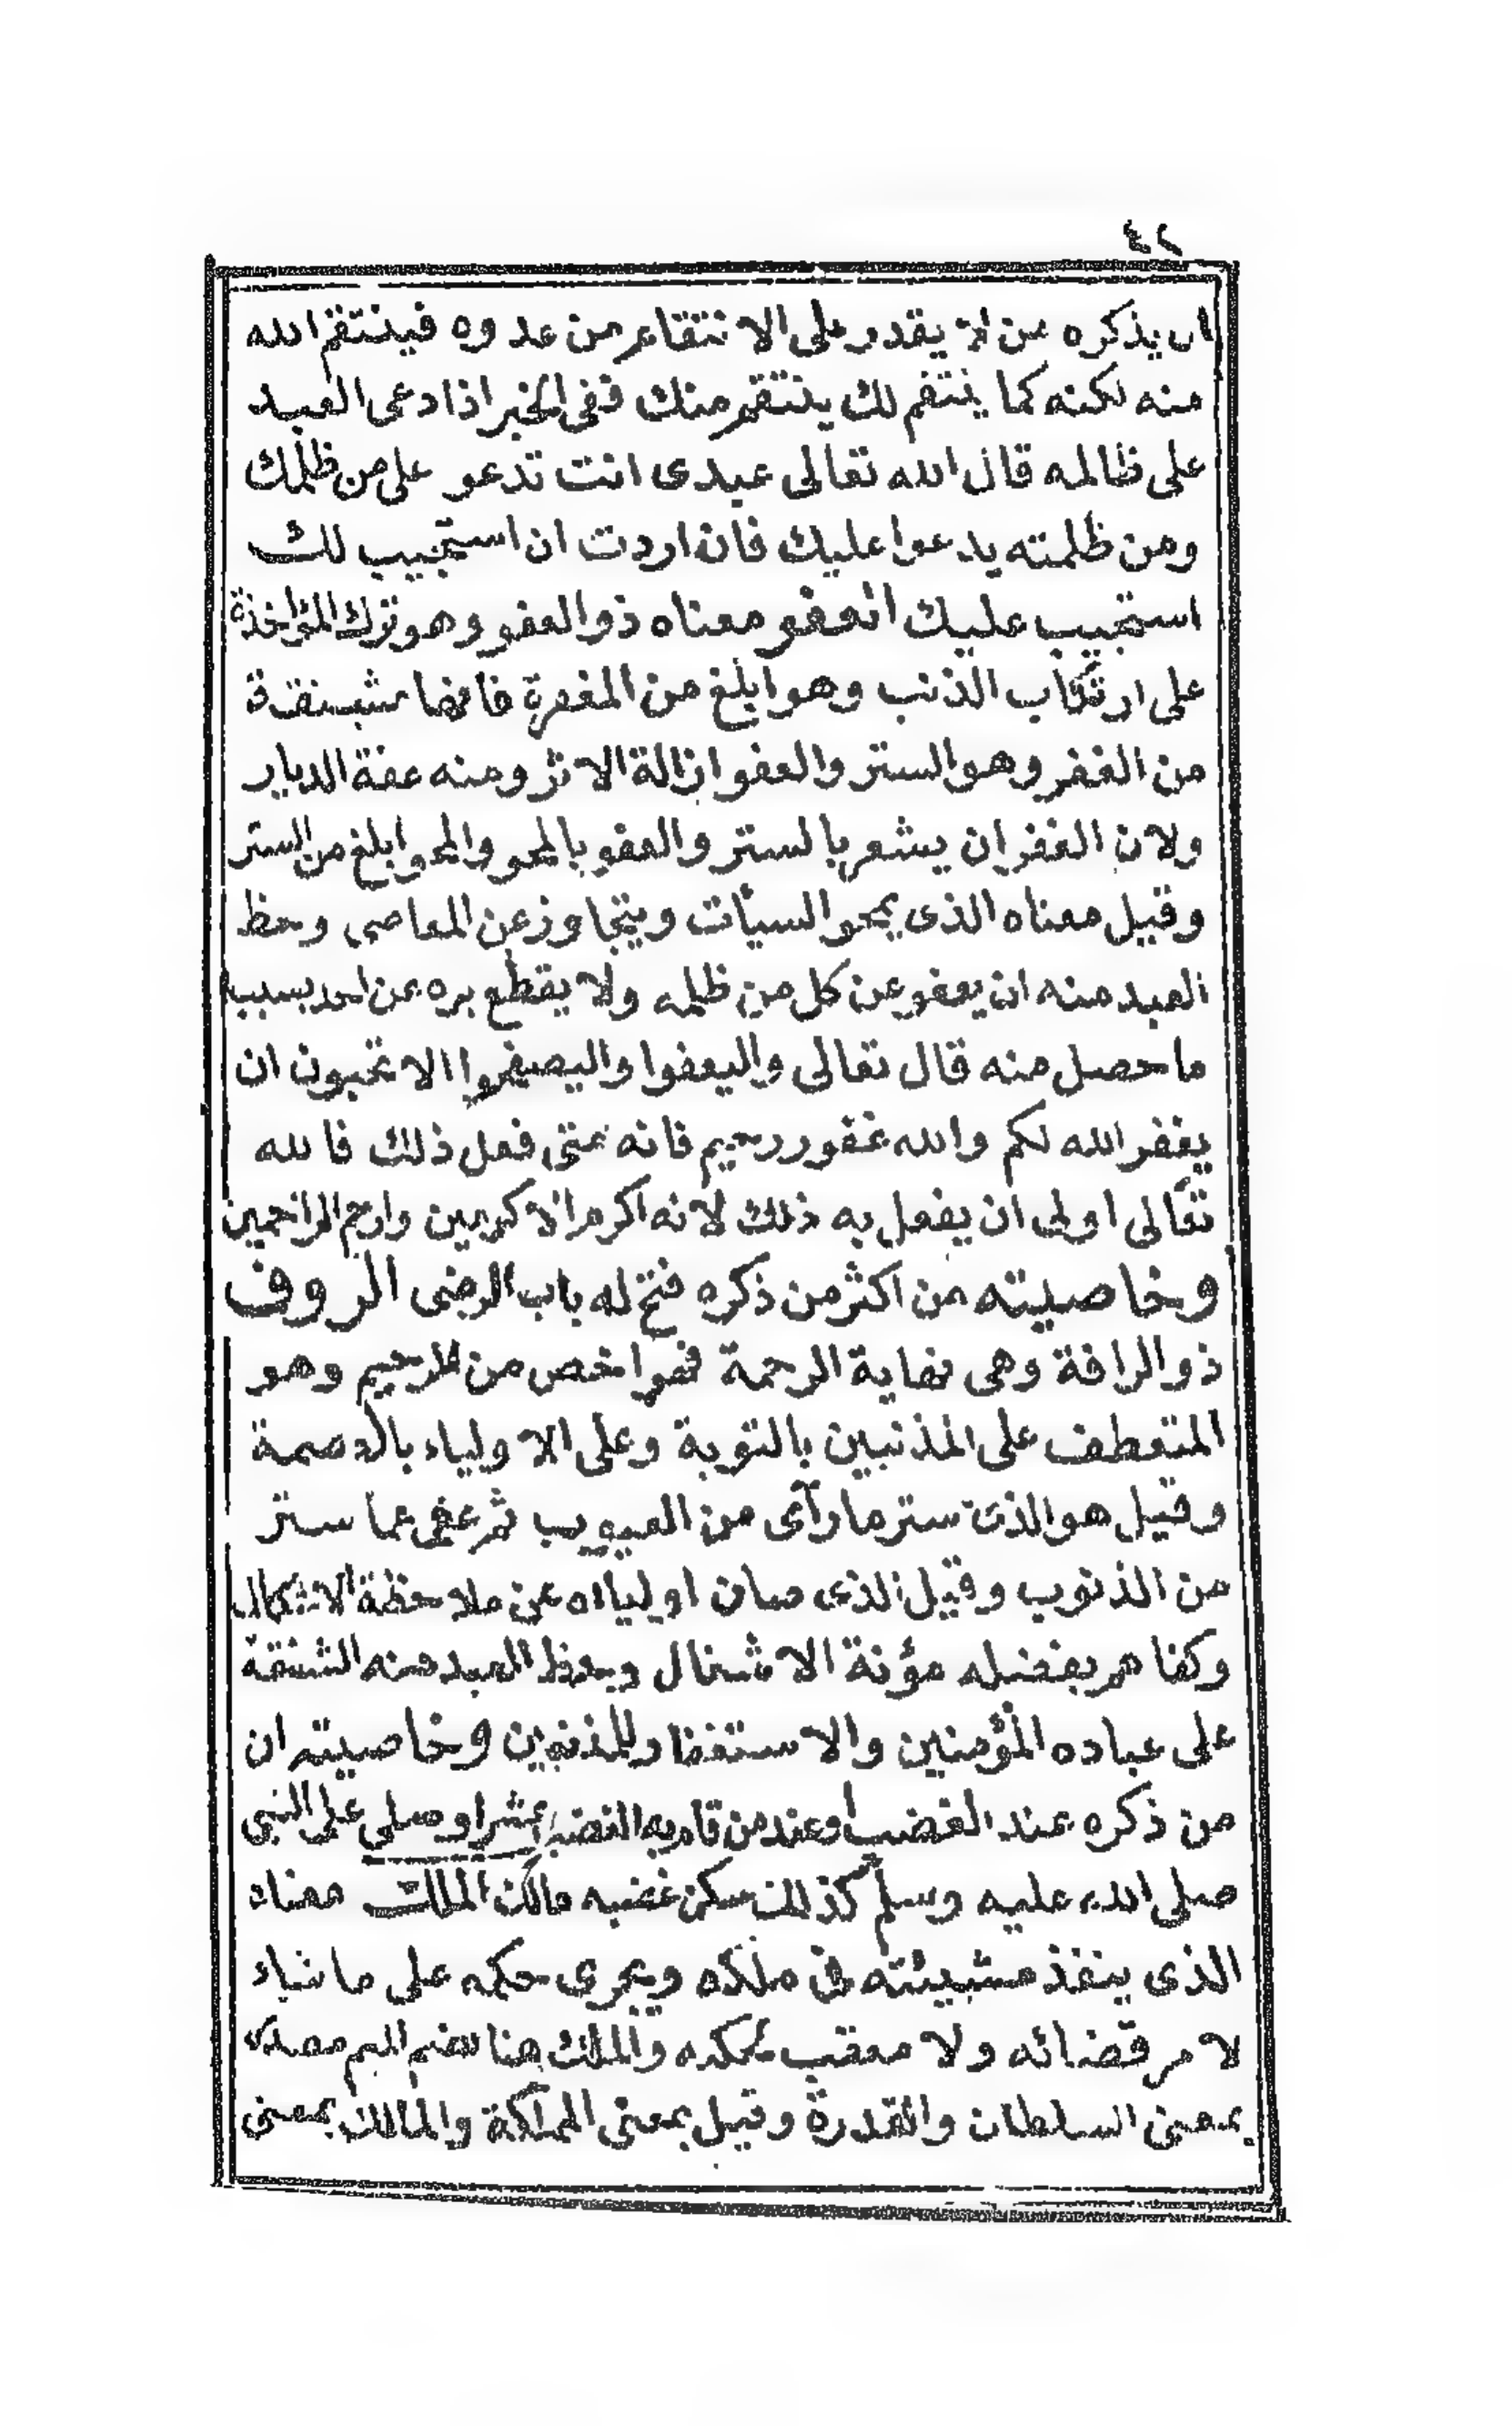 ٤٢
ان يذكره من لا يقدر على الانتقام من عدوه فينتقم الله
منه لكنه كما ينتقم لك ينتقم منك ففى الخبر اذا دعى العبد
على ظالمه قال الله تعالى عبدى انت تدعو على من ظلمك
ومن ظلمته يدعوا عليك فان اردت ان استجيب لك
استجيب عليك العفو معناه ذو العفو وهو ترك المؤاخذة
على ارتكاب الذنب وهو ابلغ من المغفرة فانها مشتقة
من الغفر وهو الستر والعفو ازالة الاثر ومنه عفة الديار
ولان الغفران يشعر بالستر والعفو بالمحو والمحو ابلغ من الستر
وقيل معناه الذى يمحو السيأت ويتجاوز عن المعاصى وحظ
العبد منه ان يعفو عن كل من ظلمه ولا يقطع بره عن احد بسبب
ما حصل منه قال تعالى واليعفوا واليصفحوا الا تحبون ان
يغفر الله لكم والله غفور رحيم فانه متى فعل ذلك فالله
تعالى اولى ان يفعل به ذلك لانه اكرم الاكرمين وارحم الراحمين
وخاصيته من اكثر من ذكره فتح له باب الرضى الروف
ذو الرافة وهى نهاية الرحمة فهو اخص من الرحيم وهو
المتعطف على المذنبين بالتوبة وعلى الاولياء بالعصمة
وقيل هو الذى ستر ما رآى من العيوب ثم عفى عما ستر
من الذنوب وقيل الذى صان اولياءه عن ملاحظة الاشكال
وكفاهم بفضله مؤنة الاشغال وحظ العبد منه الشفقة
على عباده المؤمنين والاستغفار للمذنبين وخاصيته ان
من ذكره عند الغضب او عند من قام به الغضب عشرا وصلى على النبى
صلى الله عليه وسلم كذلك سكن غضبه مالك الملك معناه
الذى ينفذ مشيئته فى ملكه ويجرى حكمه على ما شاء
لا مر قضائه ولا معقب لحكمه والملك هنا بضم الميم مصدر
بمعنى السلطان والقدرة وقيل بمعنى المملكة والمالك بمعنى